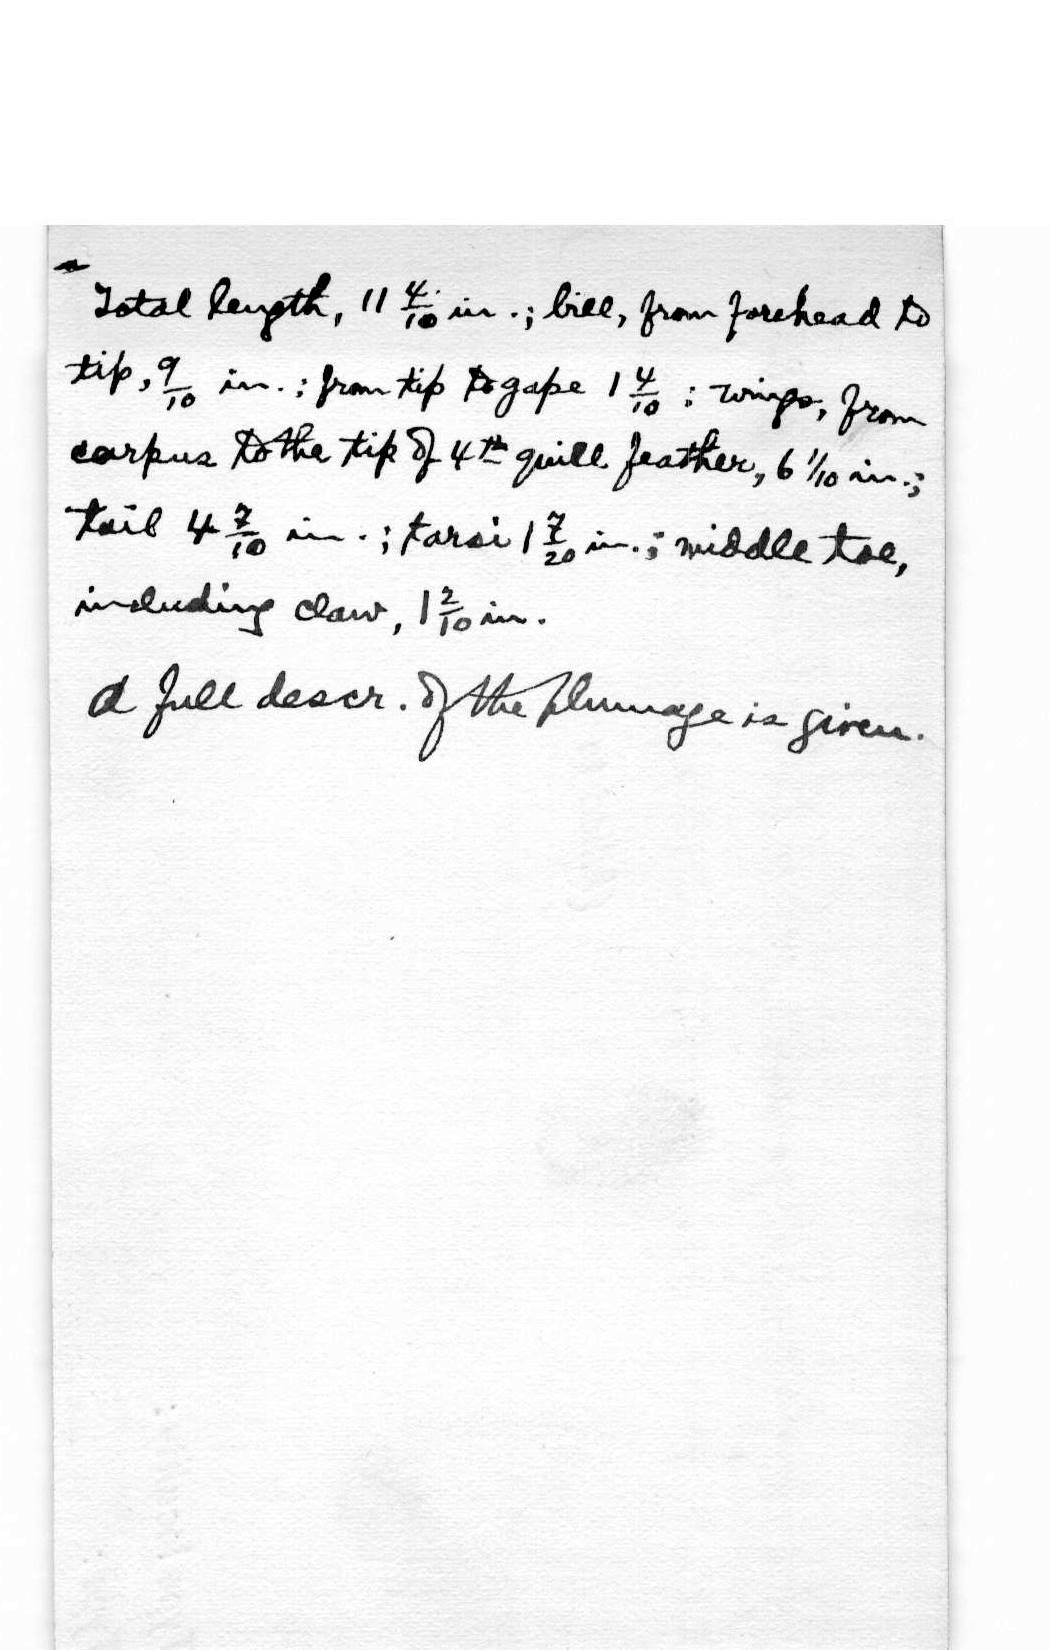 Total length, 11 4/10 in.; bill, from forehead to
tip, 9/10 in.; from tip to gape 1 4/10; wings, from
carpus to the tip of 4th quill feather, 6 1/10 in.;
tail 4 7/10 in.; tarsi 1 7/20 in.; middle toe,
including claw, 1 2/10 in.
A full descr. of the plumage is given.